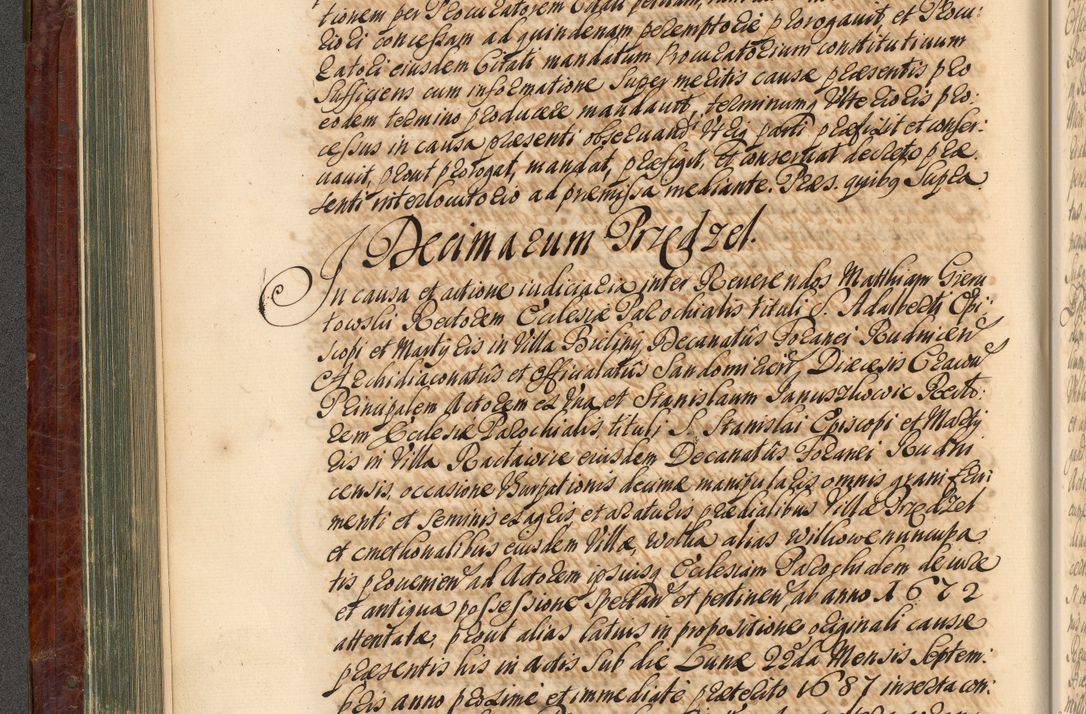 tionem per Procuratorem Citati
riori concessam ad quindenam peremptorie prorogavit, et Procu:
ratori eiusdem Citati mandatum Procuratorium constitutivum
sufficiens cum informatione super meritis causæ præsentis pro
eodem termino producere mandavit, terminumq
cessus in causa præsenti observand parti præfixit et conser:
vavit, prout prorogat, mandat, præfigit, et conservat decreto præ
senti interlocutorio ad præmissa mediante. Præs. quibq supra
Decimarum Przędzel.
In causa et actione iudiciaria inter Reverendos Matthiam Gieru
towski Rectorem Ecclesiæ Parochialis tituli S. Adalberti Epi:
scopi et Martyris in Villa Bieliny Decanatûs Foranei Rudnicen
Archidiaconatûs et Officialatûs Sandomirien, Diæcesis Cracovi
Principalem Actorem ex Una, et Stanislaum Januszkowic Recto:
rem Ecclesiæ Parochialis, tituli S. Stanislai Episcopi et Marty
ris in Villa Racławice eiusdem Decanatûs Foranei Rudni
censis, occasione Usurpationis decimæ manipularis omnis grani fru:
menti et seminis ex agris et araturis prædialibus Villæ Przędzel
et cmethonalibus eiusdem Villæ, Wolka alias Wilkowe nuncupa
tis provenien ad Actorem ipsiusq Ecclesiam Parochialem de iure
et antiqua possessione spectan et pertinen, ab anno 1672
attentatæ, prout alias latius in propositione originali causæ
præsentis his in Actis sub die Lunæ 22da Mensis Septem:
bris anno proxime et immediate præterito 1687 inserta con: